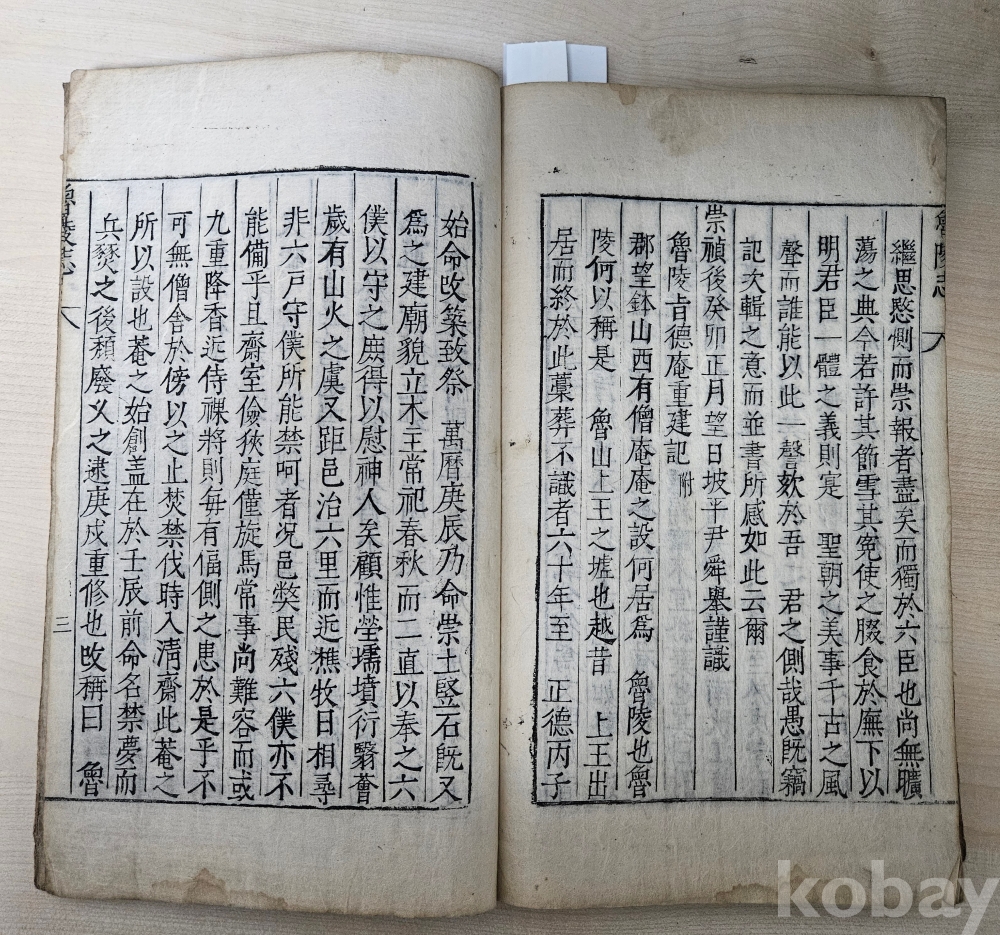 魯陵志
繼思慜惻而崇報者盡矣而獨於六臣也尚無曠
蕩之典今若許其節雪其寃使之腏食於廡下以
明君臣一體之義則寔 聖朝之美事千古之風
聲而誰能以此一謦欬於吾二君之側哉愚旣竊
記次輯之意而並書所感如此云爾
崇禎後癸卯正月望日坡平尹舜擧謹識
魯陵肯德庵重建記 附
郡望鉢山西有僧庵庵之設何居爲 魯陵也魯
陵何以稱是 魯山上王之墟也越昔 上王出
居而終於此藁葬不識者六十年至 正德丙子
始命改築致祭 萬曆庚辰乃命崇土竪石旣又
爲之建廟貌立木主常祀春秋而二直以奉之六
僕以守之庶得以慰神人矣顧惟塋壖墳衍翳薈
歲有山火之虞又距邑治六里而近樵牧日相尋
非六戶守僕所能禁呵者况邑獘民殘六僕亦不
能備乎且齋室儉狹庭僅旋馬常事尚難容而或
九重降香近侍祼將則每有偪側之患於是乎不
可無僧舍於傍以之止焚禁伐時入淸齋此菴之
所以設也菴之始創盖在於壬辰前命名禁夢而
兵燹之後頹廢乂之逮庚戍重修也改稱曰 魯
魯陵志
三
kobay